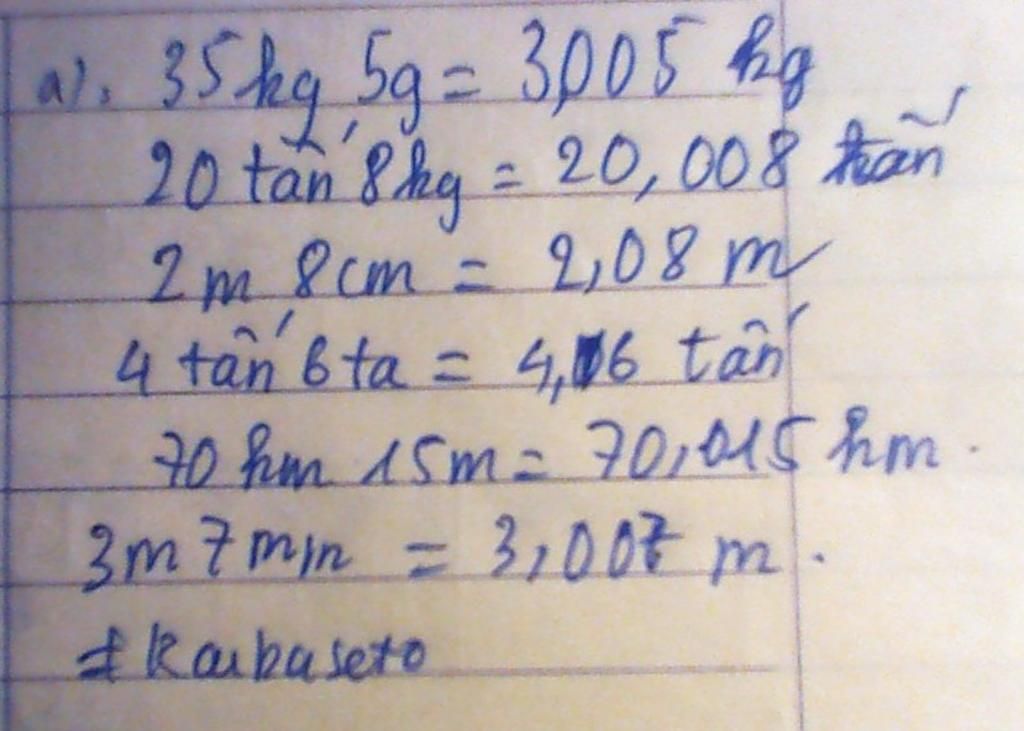 a). 35kg 5g = 3,005 kg
20 tấn 8kg = 20,008 tấn
2m 8cm = 2,08 m
4 tấn 6 ta = 4,6 tấn
70 km 15m = 70,015 km.
3m 7mm = 3,007 m.
#Kaibaseto